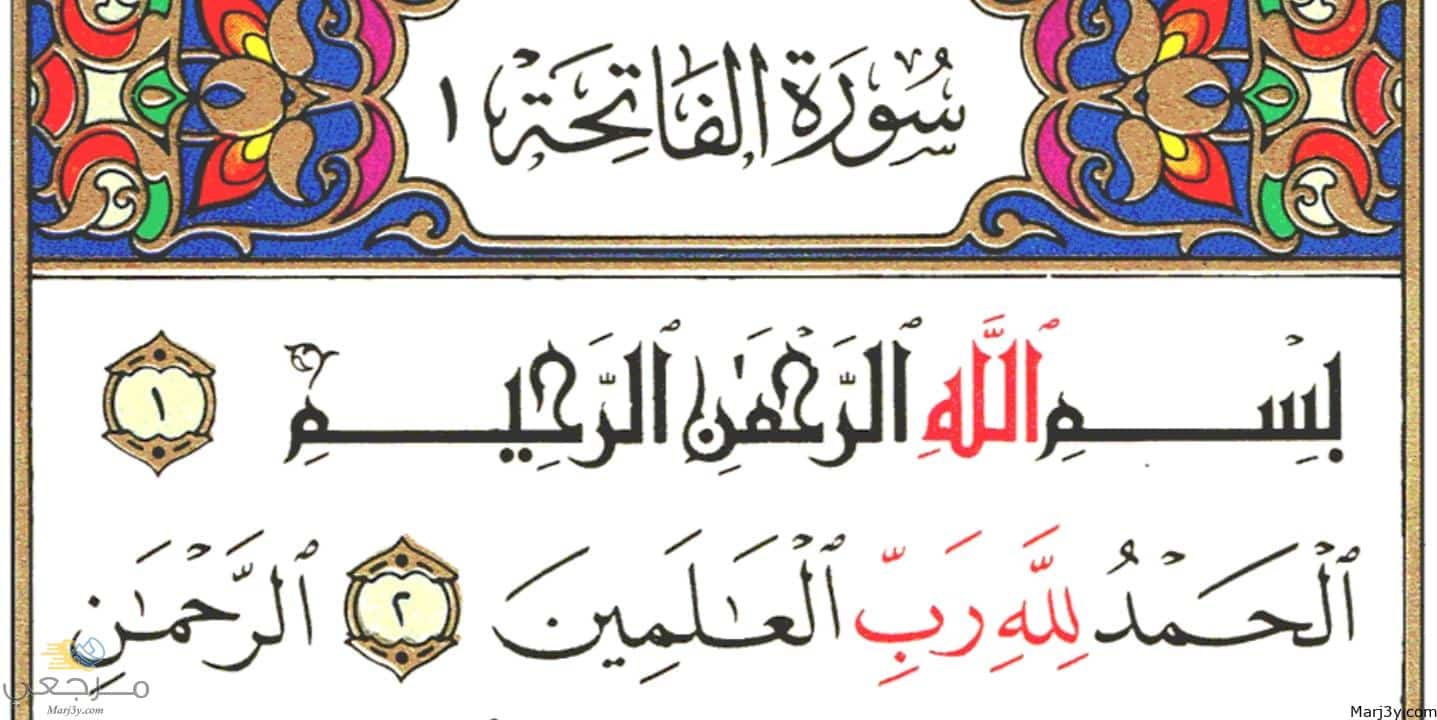 سُورَةُ الْفَاتِحَةِ ١
بِسْمِ ٱللَّهِ ٱلرَّحْمَٰنِ ٱلرَّحِيمِ ١
ٱلْحَمْدُ لِلَّهِ رَبِّ ٱلْعَٰلَمِينَ ٢ ٱلرَّحْمَٰنِ
مرجعي
Marj3y.com
Marj3y.com